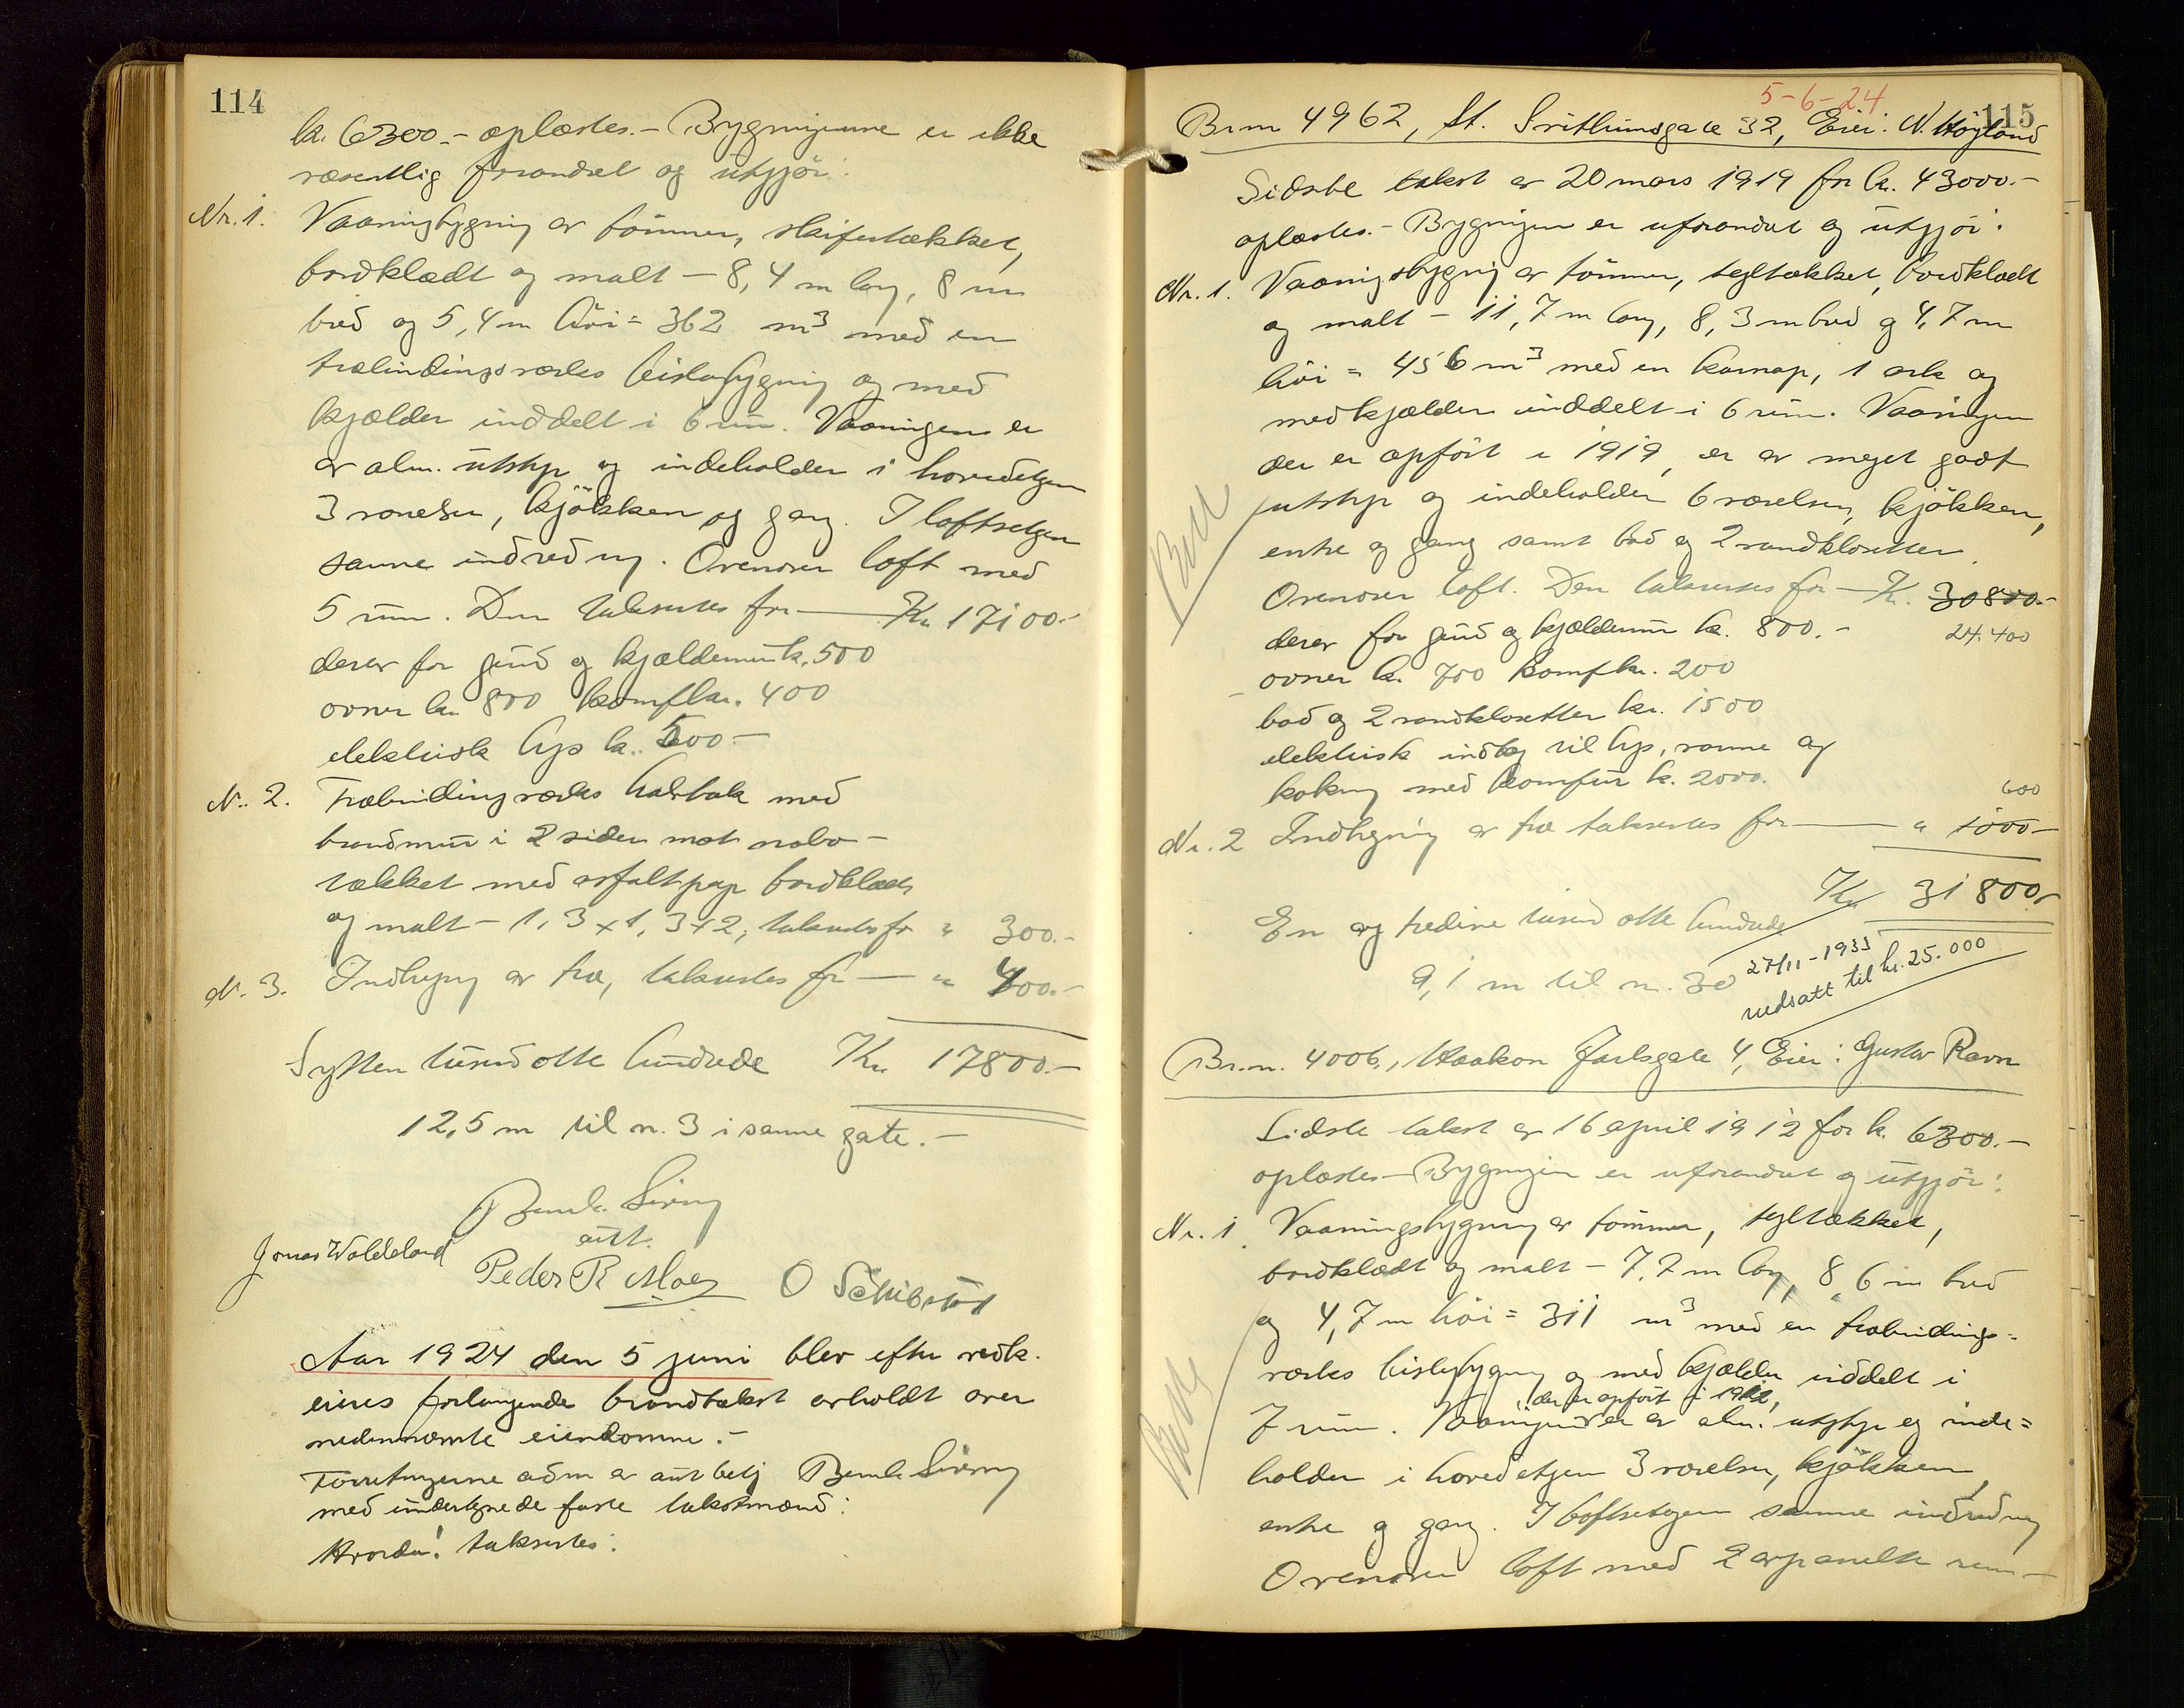 114
kr. 6300.- oplæstes.- Bygningene er ikke
væsentlig forandret og utgjör:
Nr. 1. Vaaningsbygning av tömmer, skifertækket,
bordklædt og malt - 8,4 m lang, 8 m
bred og 5,4 m höi = 362 m³ med en
træbindingsværks bislagbygning og med
kjælder inddelt i 6 rum. Vaaningen er
av alm. utstyr og indeholder i hovedetgen
3 værelser, kjökken og gang. I loftsetgen
samme indredning. Ovenover loft med
5 rum. Den takseres for - Kr 17100.-
derav for grund og kjælderrum kr. 500
ovner kr. 800 komf kr. 400
elektrisk lys kr. 500.-
Nr. 2. Træbindingsværks halvtak med
brandmur i 2 sider mot nabo -
tækket med asfaltpap bordklædt
og malt - 1,3 x 1,3 x 2, takseres for " 300.-
Nr. 3. Indhegning av træ, takseres for - " 400.-
Sytten tusind otte hundrede Kr 17800.-
12,5 m til nr. 3 i samme gate.-
Bernh. Sivring
aut.
Jonas Waldeland Peder R. Moe O Schibstad
Aar 1924 den 5 juni blev efter vedk.
eieres forlangende brandtakst avholdt over
nedennævnte eiendomme.-
Forretningerne adm. av aut. betj. Bernh. Sivring
med undertegnede faste takstmænd:
Hvorda! takseres:
5-6-24
115
Br.nr 4962, St. Svithunsgate 32, Eier: N. Höyland
Sidste takst av 20 mars 1919 for kr. 43000.-
oplæstes.- Bygningen er uforandret og utgjör:
Nr. 1. Vaaningsbygning av tömmer, tegltækket, bordklædt
og malt - 11,7 m lang, 8,3 m bred og 4,7 m
höi = 456 m³ med en karnap, 1 ark og
med kjælder inddelt i 6 rum. Vaaningen
der er opfört i 1919, er av meget godt
utstyr og indeholder 6 værelser, kjökken,
entre og gang samt bad og 2 vandklosetter
Ovenover loft. Den takseres for - Kr. 30800.-
derav for grund og kjælderrum kr. 800.- 24.400
ovner kr. 700 komf kr. 200
bad og 2 vandklosetter kr. 1500
elektrisk indlæg til lys, varme og
kokning med komfur kr. 2000.
600
Nr. 2 Indhegning av træ takseres for - " 1000-
Kr 31800.-
En og tredive tusind otte hundrede
9,1 m til nr. 30 27/11-1933
nedsatt til kr. 25.000
Br.nr. 4006, Haakon Jarlsgate 4, Eier: Gustav Ravn
Sidste takst av 16 april 1912 for kr. 6300.-
oplæstes - Bygningen er uforandret og utgjör:
Nr. 1. Vaaningsbygning av tömmer, tegltækket,
bordklædt og malt - 7,7 m lang, 8,6 m bred
og 4,7 m höi = 311 m³ med en træbindings=
værks bislagbygning og med kjælder inddelt i
der er opfört i 1912,
7 rum. Vaaningen er av alm. utstyr og inde=
holder i hovedetgen 3 værelser, kjökken,
entre og gang. I loftsetgen samme indredning
Ovenover loft med 2 avpanelte rum-